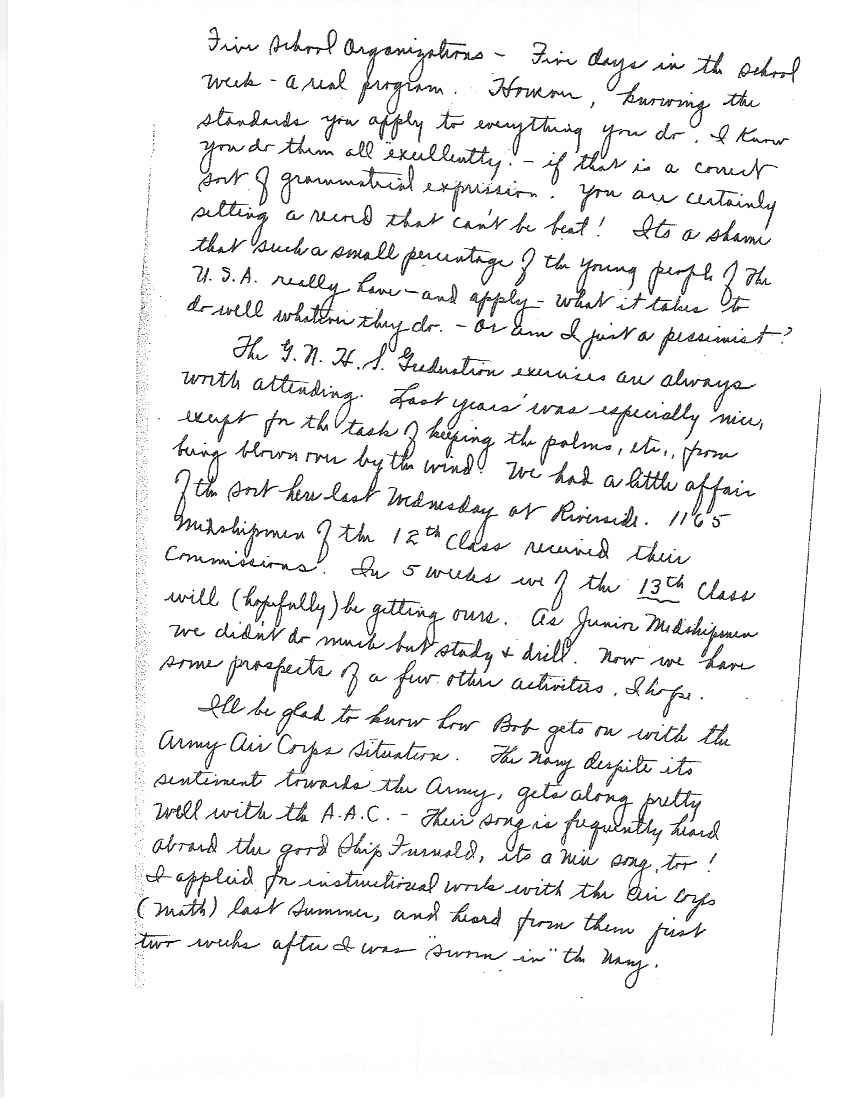 Five School Organizations - Five days in the school
week - a real program. However, knowing the
standards you apply to everything you do, I know
you do them all "excellently." - if that is a correct
sort of grammatical expression. You are certainly
setting a record that can't be beat! Its a shame
that such a small percentage of the young people of the
U.S.A. really have - and apply - what it takes to
do well whatever they do. - Or am I just a pessimist?
The G.N.H.S. Graduation exercises are always
worth attending. Last years' was especially nice,
except for the task of keeping the palms, etc., from
being blown over by the wind! We had a little affair
of the sort here last Wednesday at Riverside. 1165
Midshipmen of the 12th Class received their
Commissions. In 5 weeks we of the 13th Class
will (hopefully) be getting ours. As Junior Midshipmen
we didn't do much but study & drill. Now we have
some prospects of a few other activities, I hope.
I'll be glad to know how Bob gets on with the
Army Air Corps situation. The Navy despite its
sentiment towards the Army, gets along pretty
well with the A.A.C. - Their song is frequently heard
aboard the good Ship Furnald, its a nice song, too!
I applied for instructional work with the Air Corps
(Math) last Summer, and heard from them just
two weeks after I was "sworn in" the Navy.